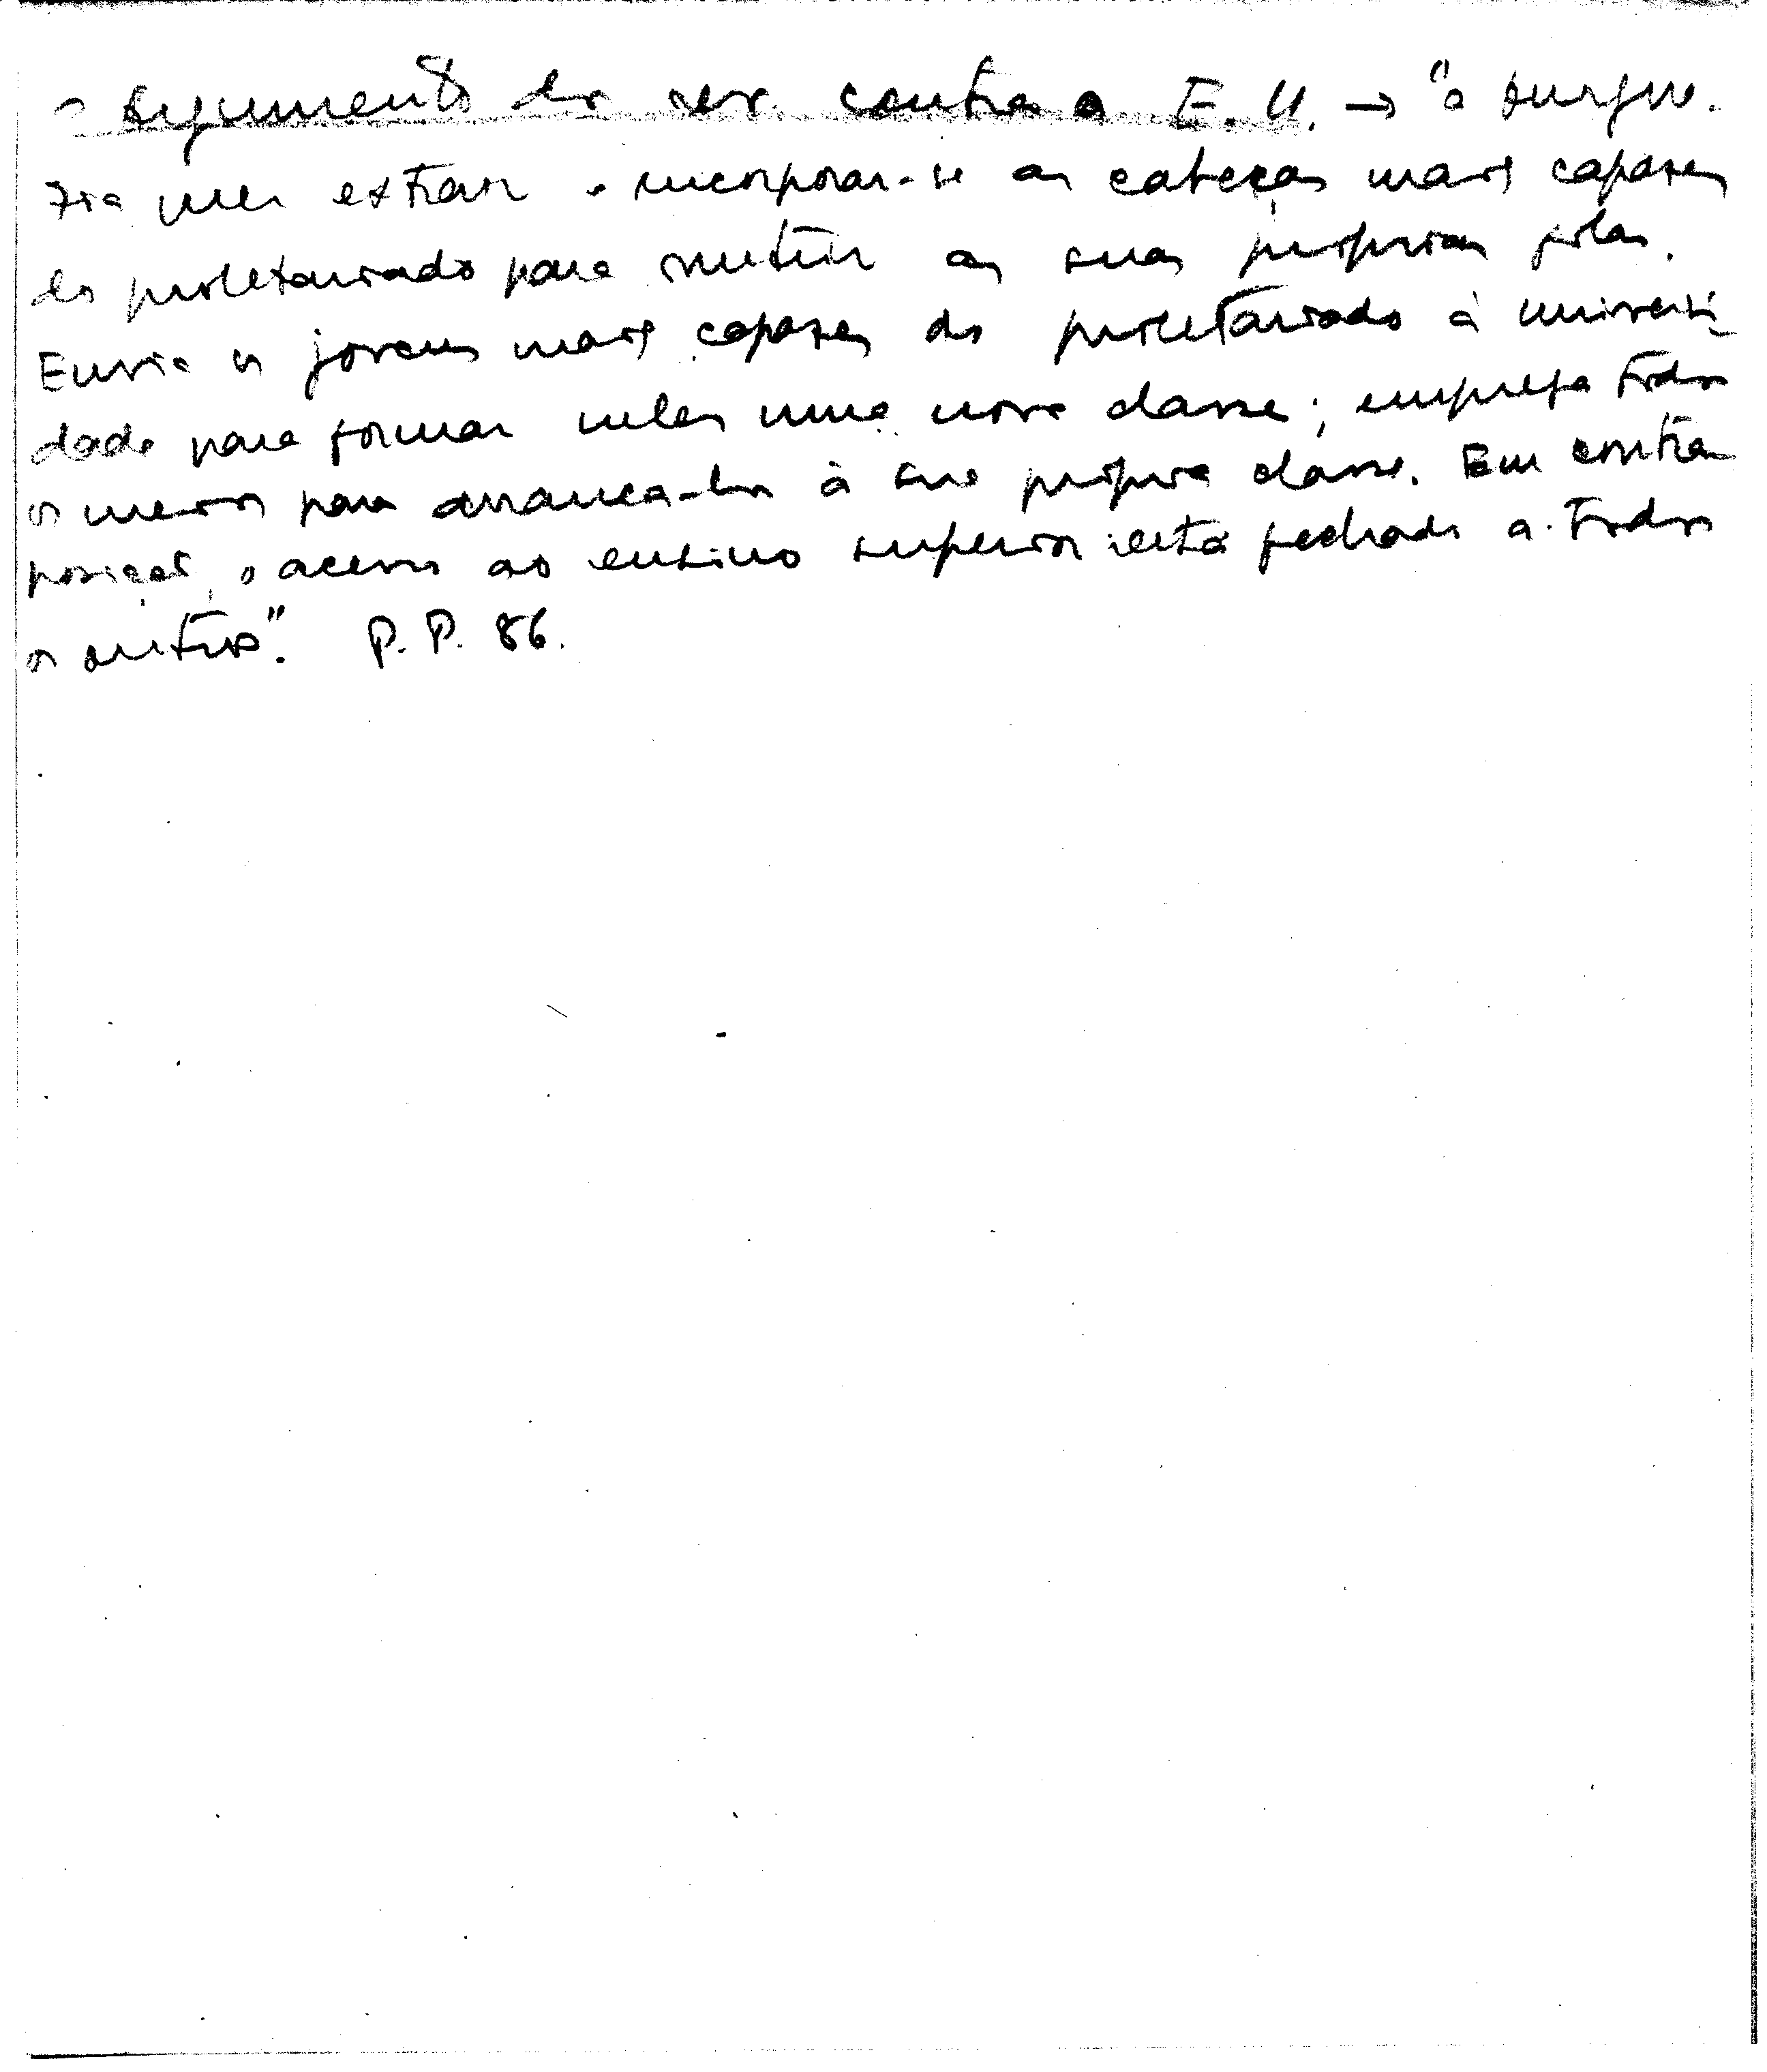 Argumento do contra a E. U. → "a burgue.
zia quer extrair e incorporar-se as cabeças mais capazes
do proletariado para as suas próprias filas.
Envia os jovens mais capazes do proletariado à universi
dade para formar neles uma nova classe; emprega todos
os meios para arranca-los à sua própria classe. Em contra
posição, o acesso ao ensino superior está fechado a todos
os outros". P.P. 86.